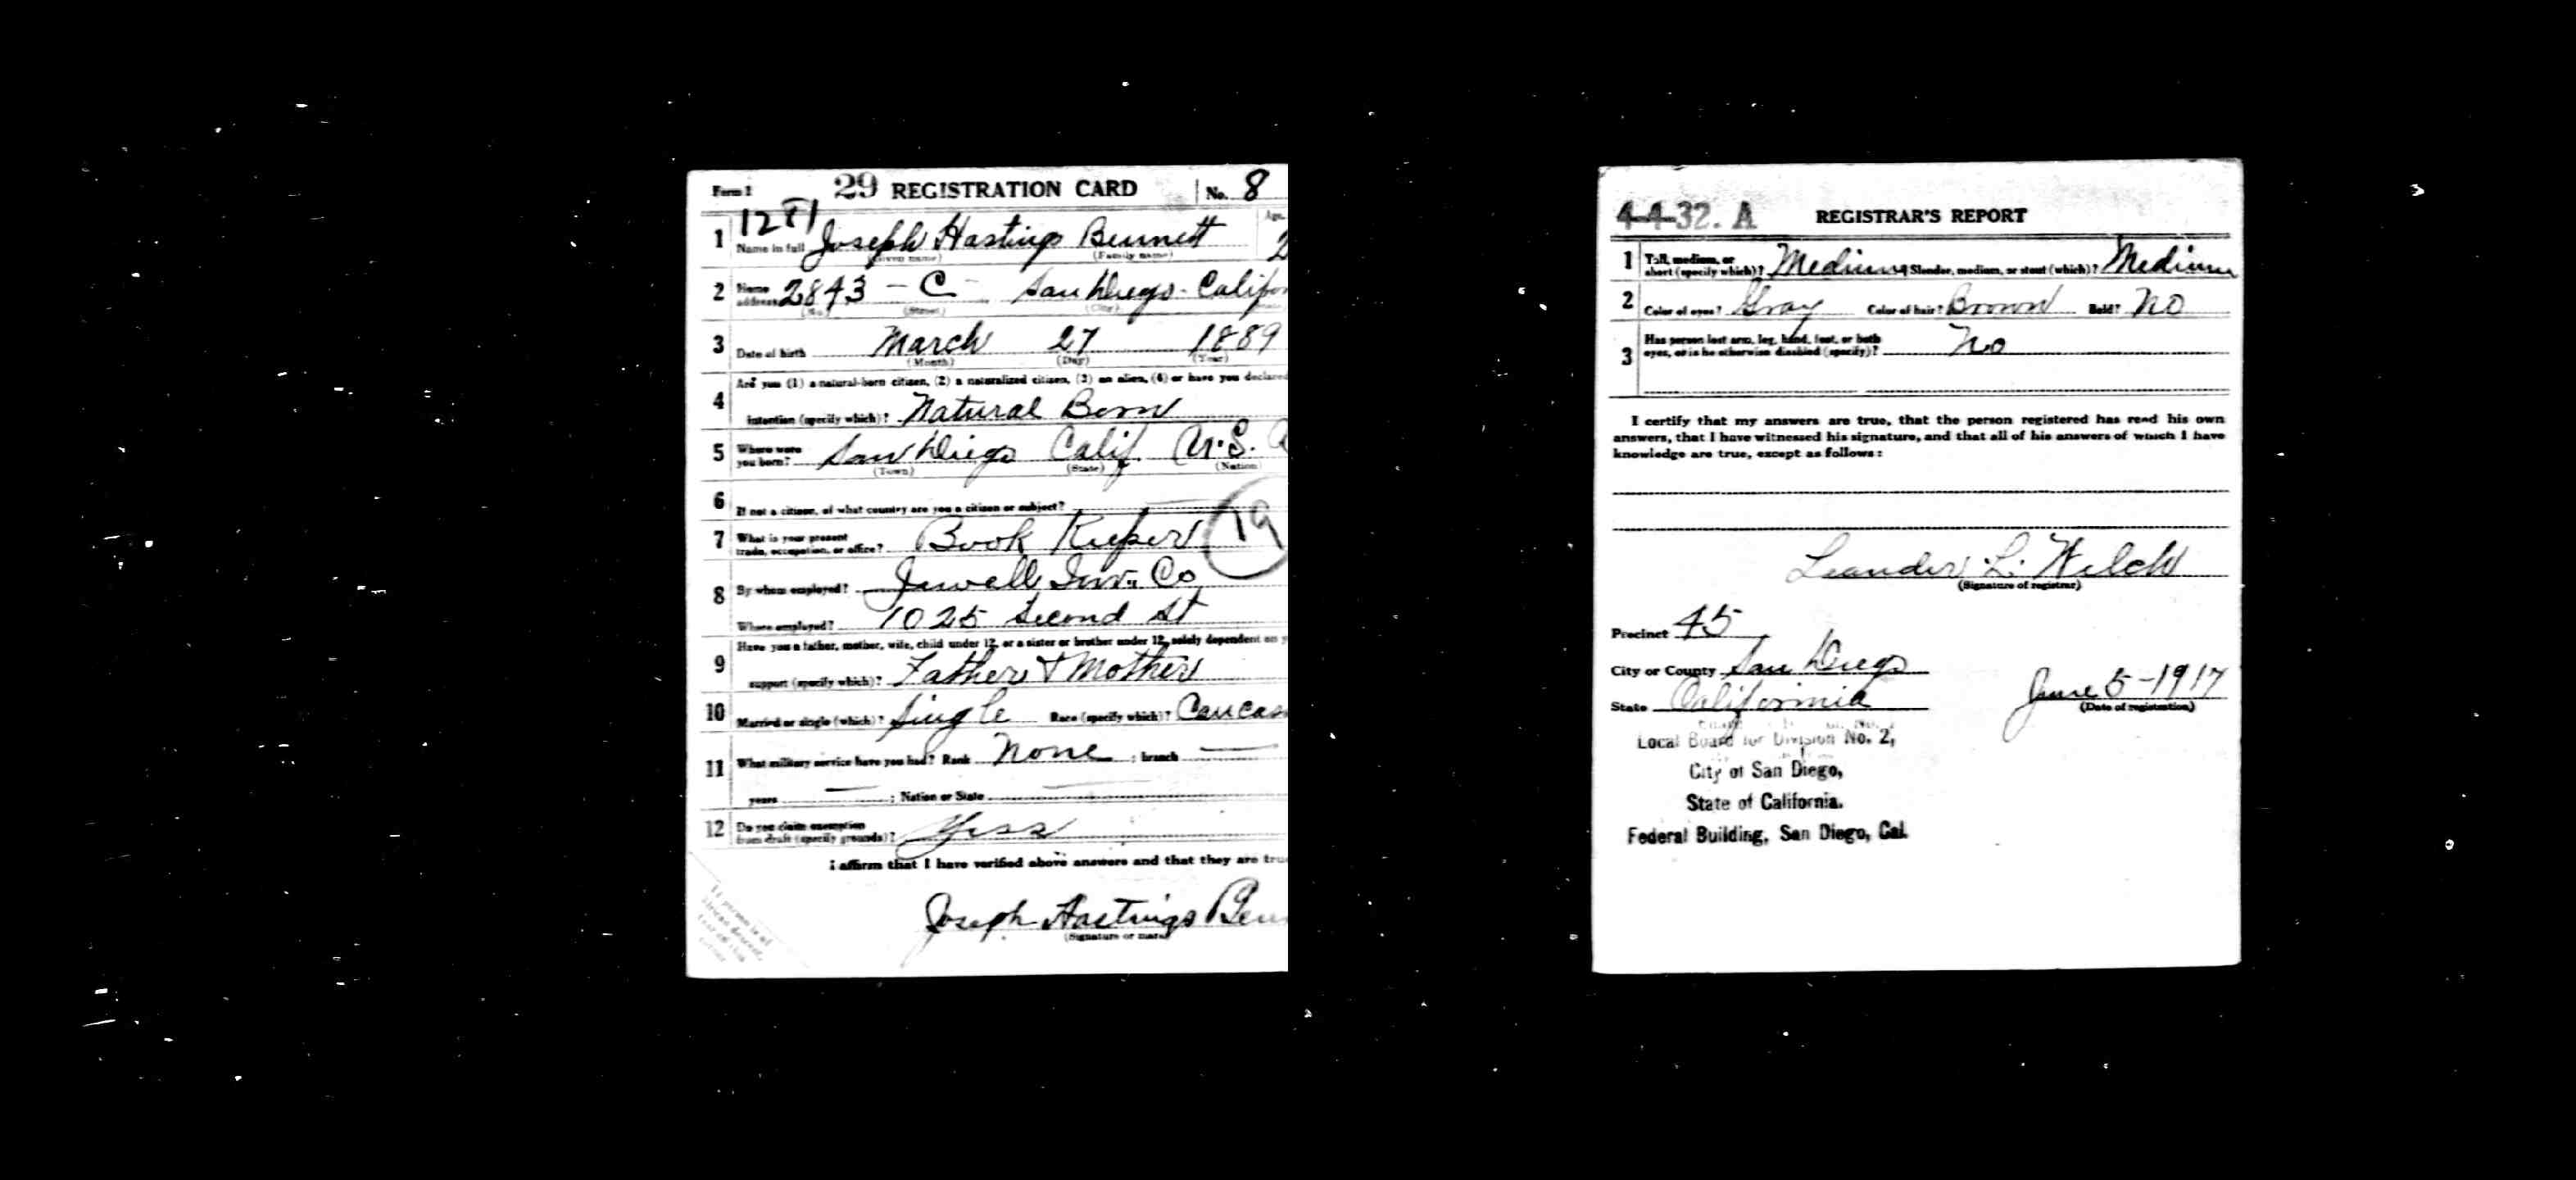 Form 1 29 REGISTRATION CARD No. 8
Age,
1 Name in full Joseph Hastings Bennett 2
(Given name) (Family name)
2 Home address 2843 - C - San Diego - Califor
(No.) (Street) (City)
3 Date of birth March 27 1889
(Month) (Day) (Year)
Are you (1) a natural-born citizen, (2) a naturalized citizen, (3) an alien, (4) or have you declared
4 intention (specify which)? Natural Born
5 Where were you born? San Diego Calif U.S.
(Town) (State) (Nation)
6 If not a citizen, of what country are you a citizen or subject?
19
7 What is your present trade, occupation, or office? Book Keeper
8 By whom employed? Jewell Inv. Co
Where employed? 1025 Second St
Have you a father, mother, wife, child under 12, or a sister or brother under 12, solely dependent on y
9 support (specify which)? Father & Mother
10 Married or single (which)? Single Race (specify which)? Caucas
11 What military service have you had? Rank None ; branch —
years — ; Nation or State
12 Do you claim exemption from draft (specify grounds)? Yes
I affirm that I have verified above answers and that they are tru
Joseph Hastings Ben
(Signature or mark)
If person is of
African descent,
4-4-32. A REGISTRAR'S REPORT
1 Tall, medium, or short (specify which)? Medium Slender, medium, or stout (which)? Medium
2 Color of eyes? Gray Color of hair? Brown Bald? No
3 Has person lost arm, leg, hand, foot, or both eyes, or is he otherwise disabled (specify)? No
I certify that my answers are true, that the person registered has read his own
answers, that I have witnessed his signature, and that all of his answers of which I have
knowledge are true, except as follows:
Leander L. Welch
(Signature of registrar)
Precinct 45
City or County San Diego
State California
June 5-1917
(Date of registration)
Local Board for Division No. 2,
City of San Diego,
State of California.
Federal Building, San Diego, Cal.